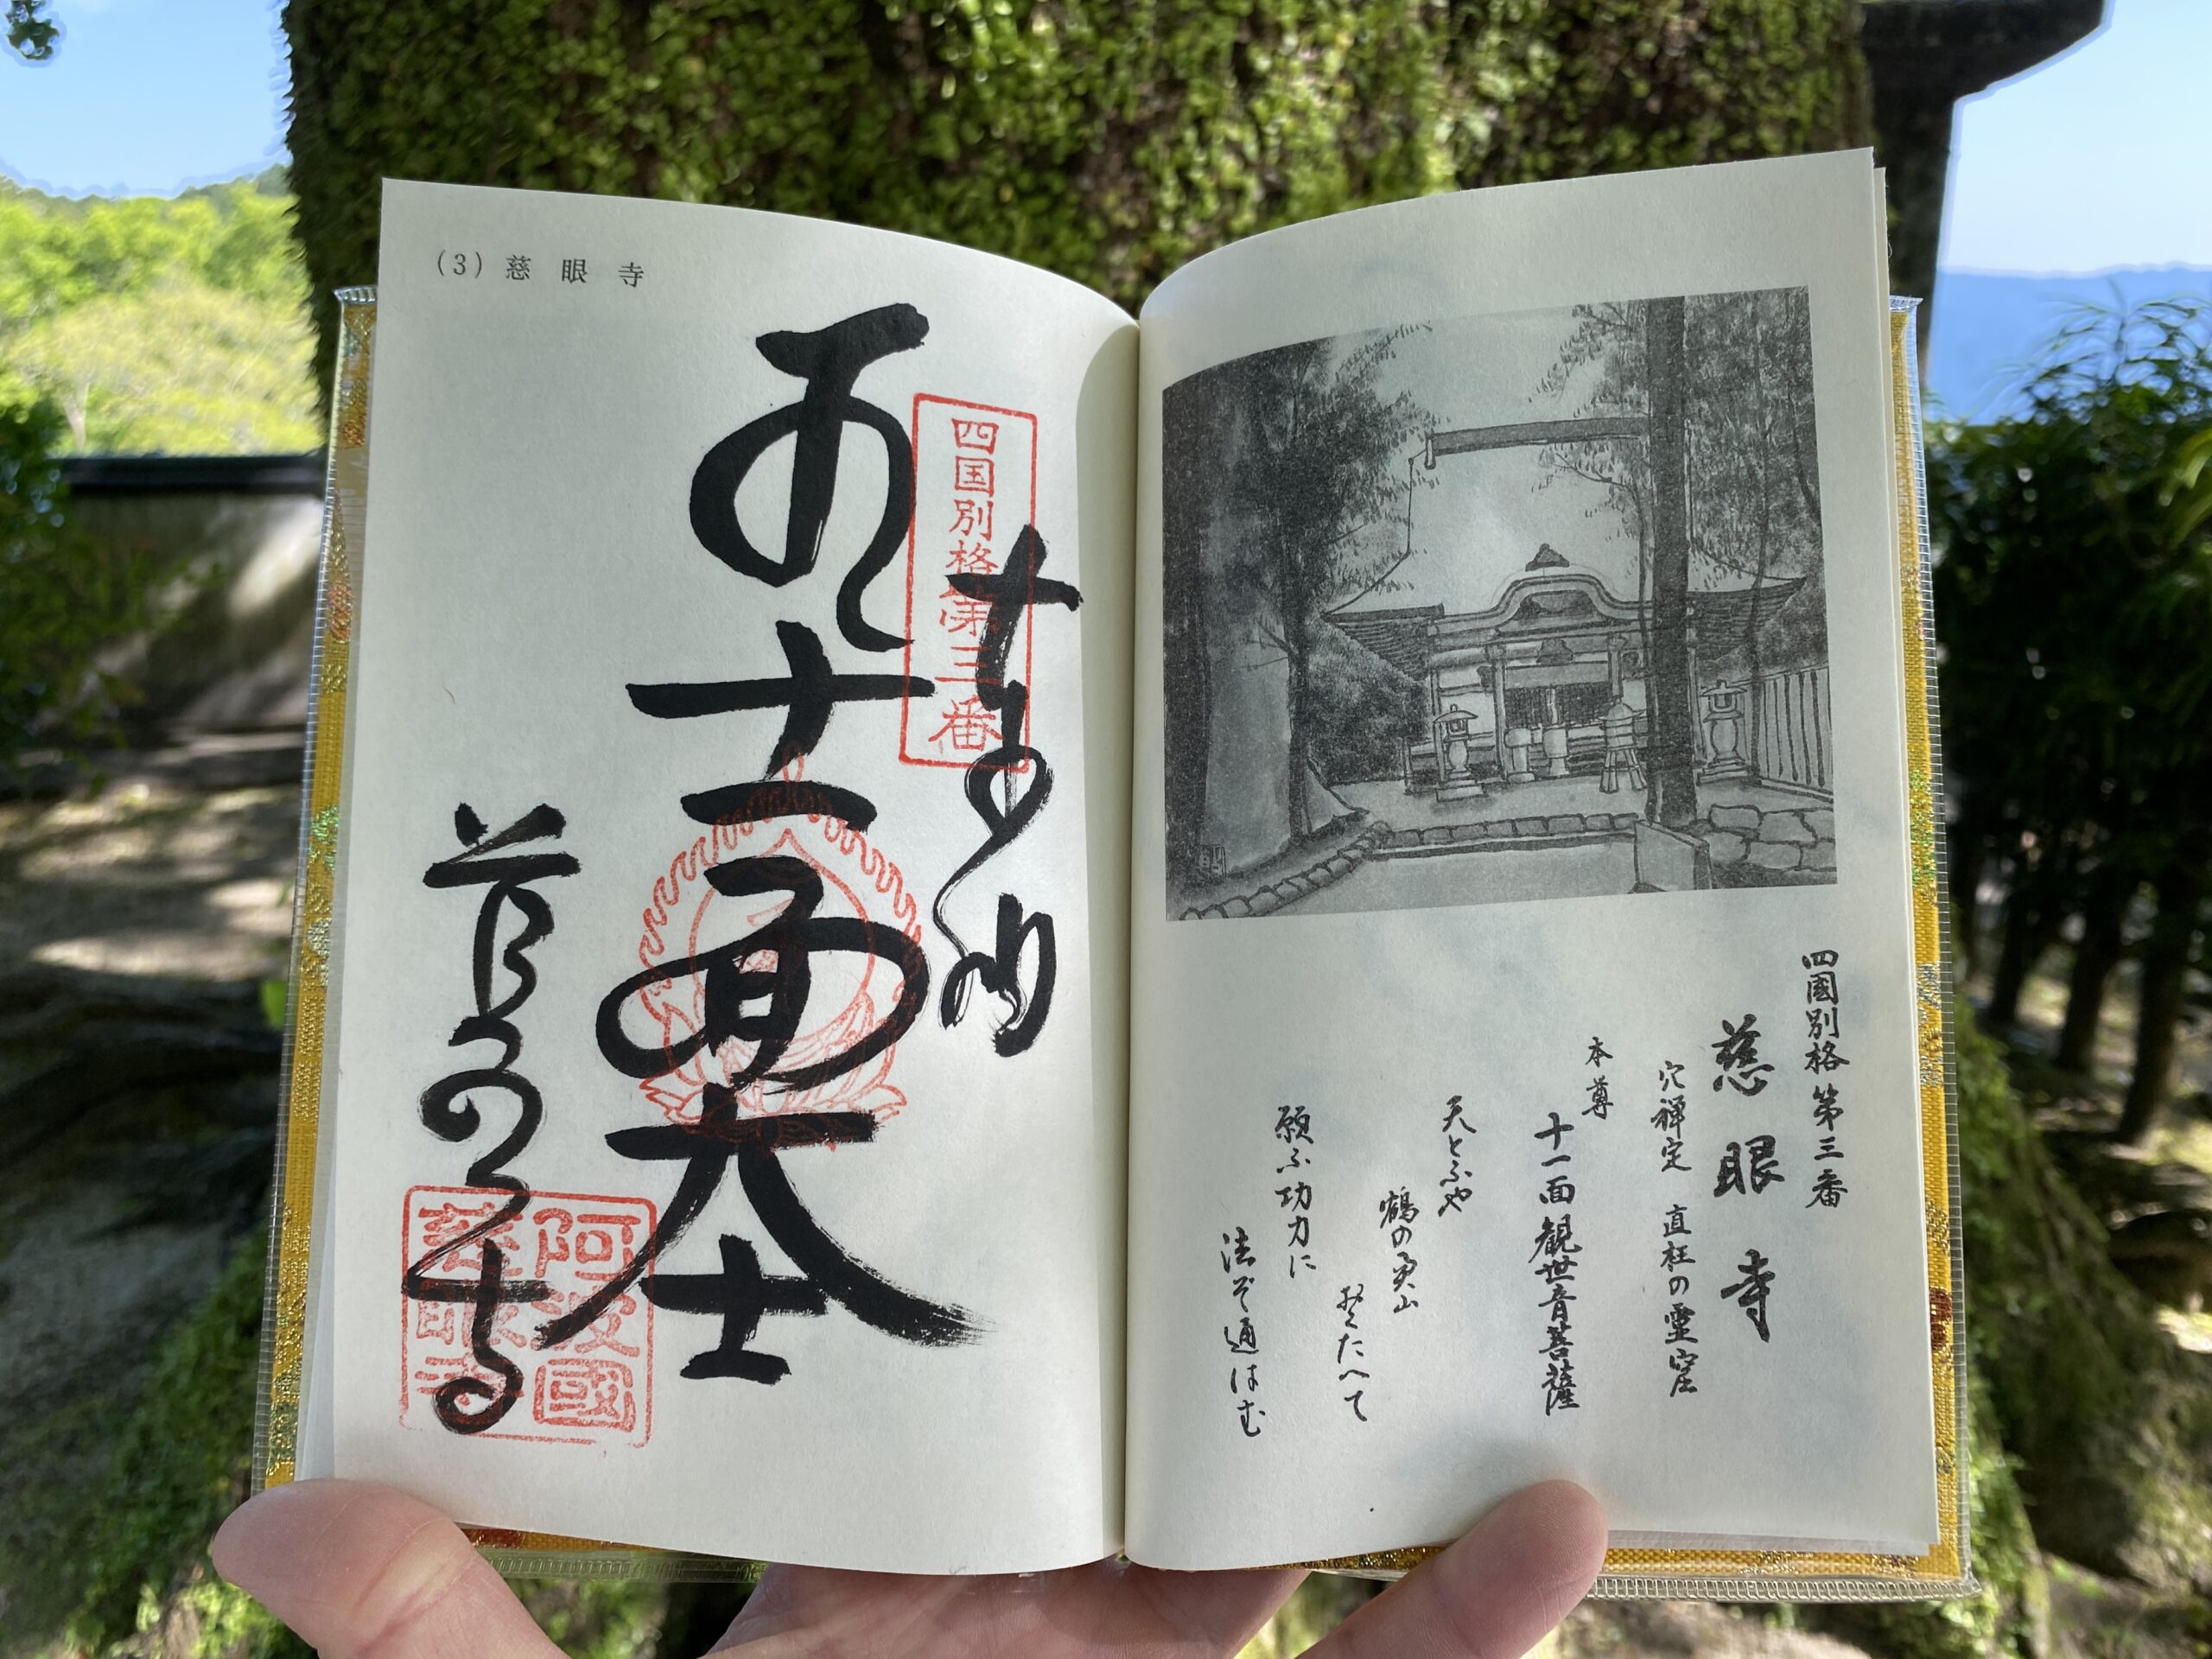 四國別格 第三番
慈眼寺
穴禅定 直枉の霊窟
本尊
十一面観世音菩薩
天とふや
鶴の奥山
おくたへて
願ふ功力に
法ぞ通はむ
(3) 慈眼寺
四国別格第三番
奉納
十一面大士
慈眼寺
阿波國
慈眼寺